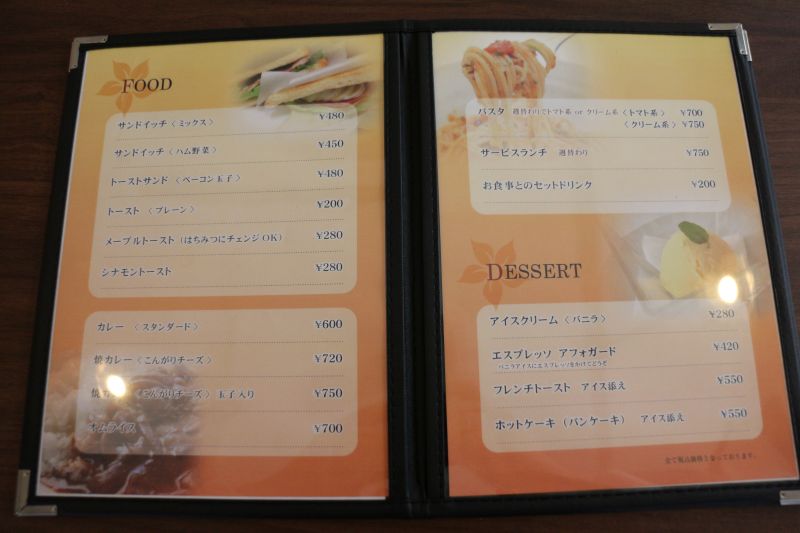 FOOD
サンドイッチ〈ミックス〉 ¥480
サンドイッチ〈ハム野菜〉 ¥450
トーストサンド〈ベーコン玉子〉 ¥480
トースト〈プレーン〉 ¥200
メープルトースト（はちみつにチェンジOK） ¥280
シナモントースト ¥280
カレー〈スタンダード〉 ¥600
焼カレー〈こんがりチーズ〉 ¥720
焼カ 〈こんがりチーズ〉玉子入り ¥750
オムライス ¥700
パスタ 週替わりでトマト系 or クリーム系〈トマト系〉 ¥700
〈クリーム系〉 ¥750
サービスランチ 週替わり ¥750
お食事とのセットドリンク ¥200
DESSERT
アイスクリーム〈バニラ〉 ¥280
エスプレッソ アフォガード ¥420
バニラアイスにエスプレッソをかけてどうぞ
フレンチトースト アイス添え ¥550
ホットケーキ（パンケーキ） アイス添え ¥550
全て税込価格となっております。